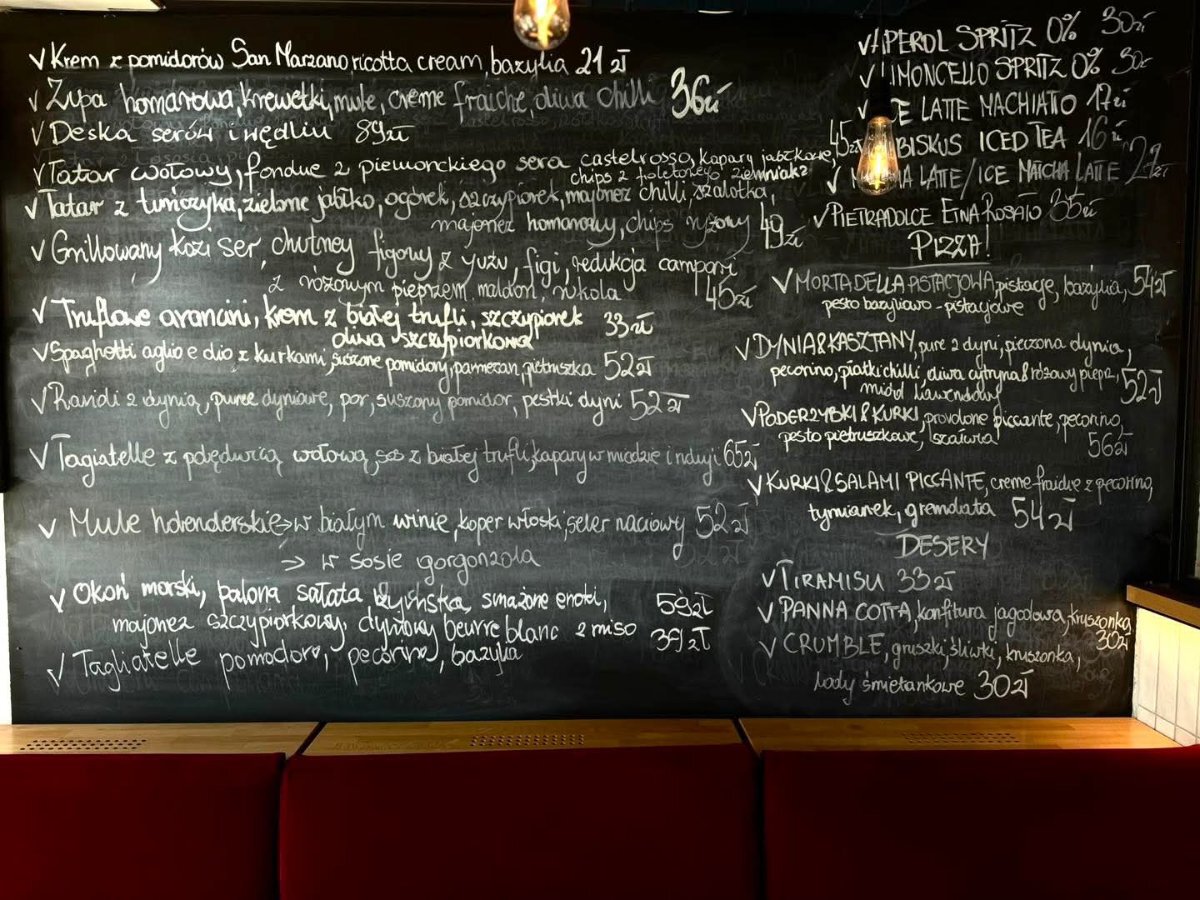 √ Krem z pomidorów San Marzano, ricotta cream, bazylia 21 zł
√ Zupa homarowa, krewetki, mule, creme fraiche, oliwa chilli 36 zł
√ Deska serów i wędlin 89 zł
√ Tatar wołowy, fondue z piemonckiego sera castelrosso, kapary jabłkowe, 45 zł
chips z fioletowego ziemniaka
√ Tatar z tuńczyka, zielone jabłko, ogórek, szczypiorek, majonez chilli, szalotka,
majonez homarowy, chips ryżowy 49 zł
√ Grillowany kozi ser, chutney figowy z yuzu, figi, redukcja campari
z różowym pieprzem, maldon, rukola 45 zł
√ Truflowe arancini, krem z białej trufli, szczypiorek 33 zł
oliwa szczypiorkowa
√ Spaghetti aglio e olio z kurkami, suszone pomidory, parmezan, pietruszka 52 zł
√ Ravioli z dynią, puree dyniowe, por, suszony pomidor, pestki dyni 52 zł
√ Tagiatelle z polędwicą wołową, sos z białej trufli, kapary w miodzie i nduji 65 zł
√ Mule holenderskie → w białym winie, koper włoski, seler naciowy 52 zł
→ w sosie gorgonzola
√ Okoń morski, palona sałata rzymska, smażone enoki, 59 zł
majonez szczypiorkowy, dyniowy beurre blanc z miso 39 zł
√ Tagliatelle pomodoro, pecorino, bazylia
√ APEROL SPRITZ 0% 30 zł
√ IMONCELLO SPRITZ 0% 30
√ CE LATTE MACHIATO 17 zł
BISKUS ICED TEA 16 zł
√ LATTE/ICE MATCHA LATTE 21 zł
√ PIETRADOLCE ETNA ROSATO 35 zł
PIZZA!
√ MORTADELLA PISTACJOWA, pistacje, bazylia, 54 zł
pesto bazyliowo-pistacjowe
√ DYNIA & KASZTANY, pure z dyni, pieczona dynia,
pecorino, płatki chilli, oliwa cytryna & różowy pieprz, 52 zł
miód lawendowy
√ PODGRZYBKI & KURKI, provolone piccante, pecorino,
pesto pietruszkowe, szałwia 56 zł
√ KURKI & SALAMI PICCANTE, creme-fraiche z pecorino,
tymianek, gremolata 54 zł
DESERY
√ TIRAMISU 33 zł
√ PANNA COTTA, konfitura jagodowa, kruszonka 30 zł
√ CRUMBLE, gruszki, śliwki, kruszonka,
lody śmietankowe 30 zł